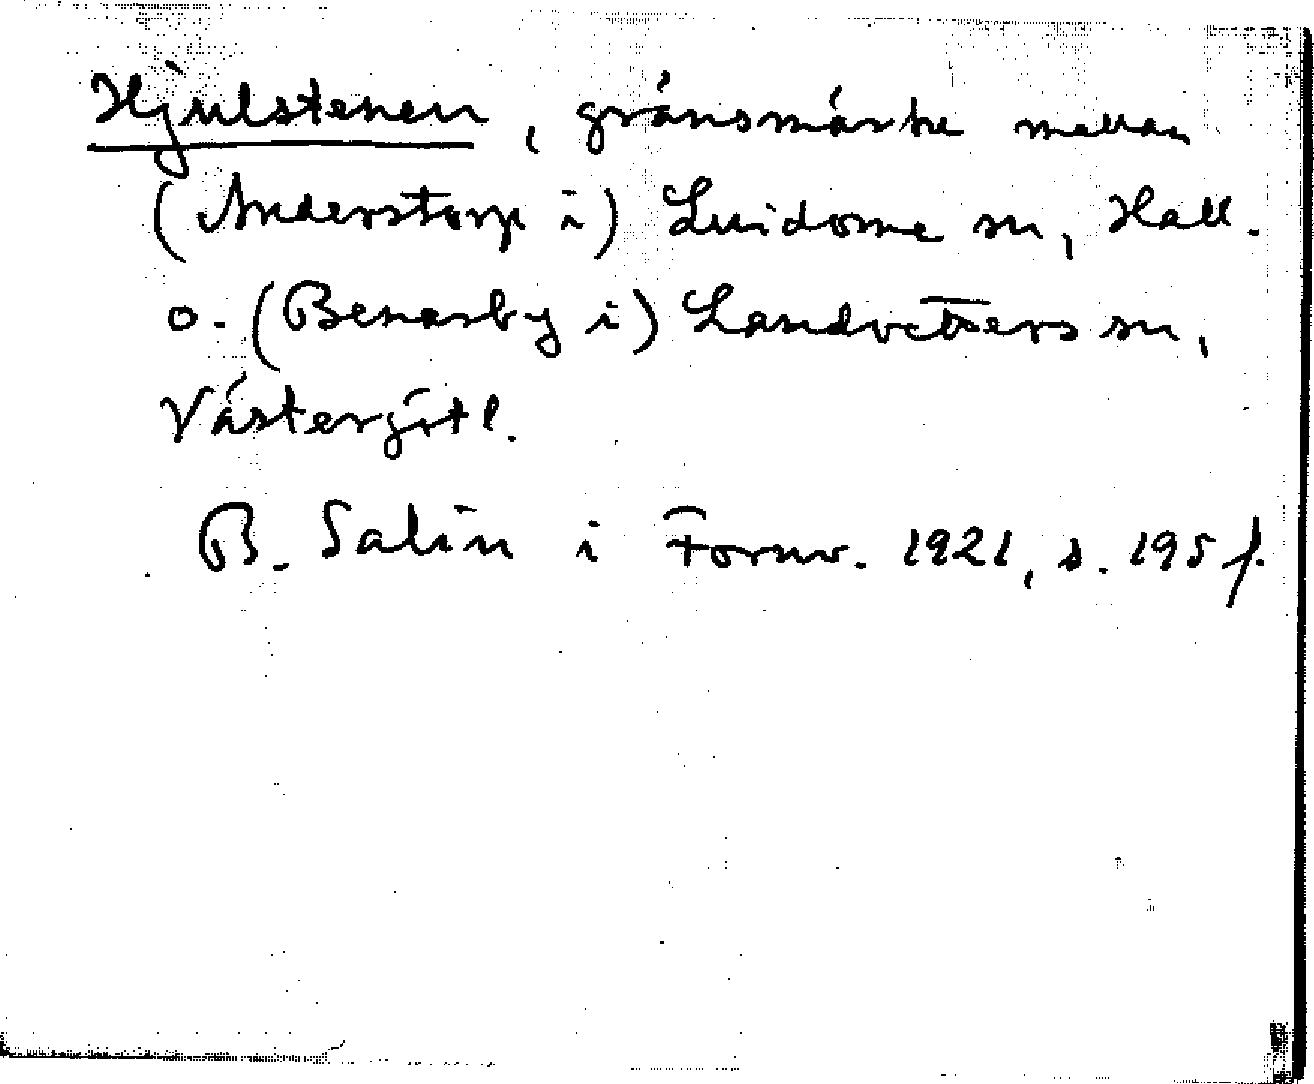 Hjulstenen, gränsmärke mellan
(Anderstorp i) Lindome sn, Hall.
o. (Benareby i) Landvetters sn,
Västergötl.
B. Salin i Fornv. 1921, s. 195 f.